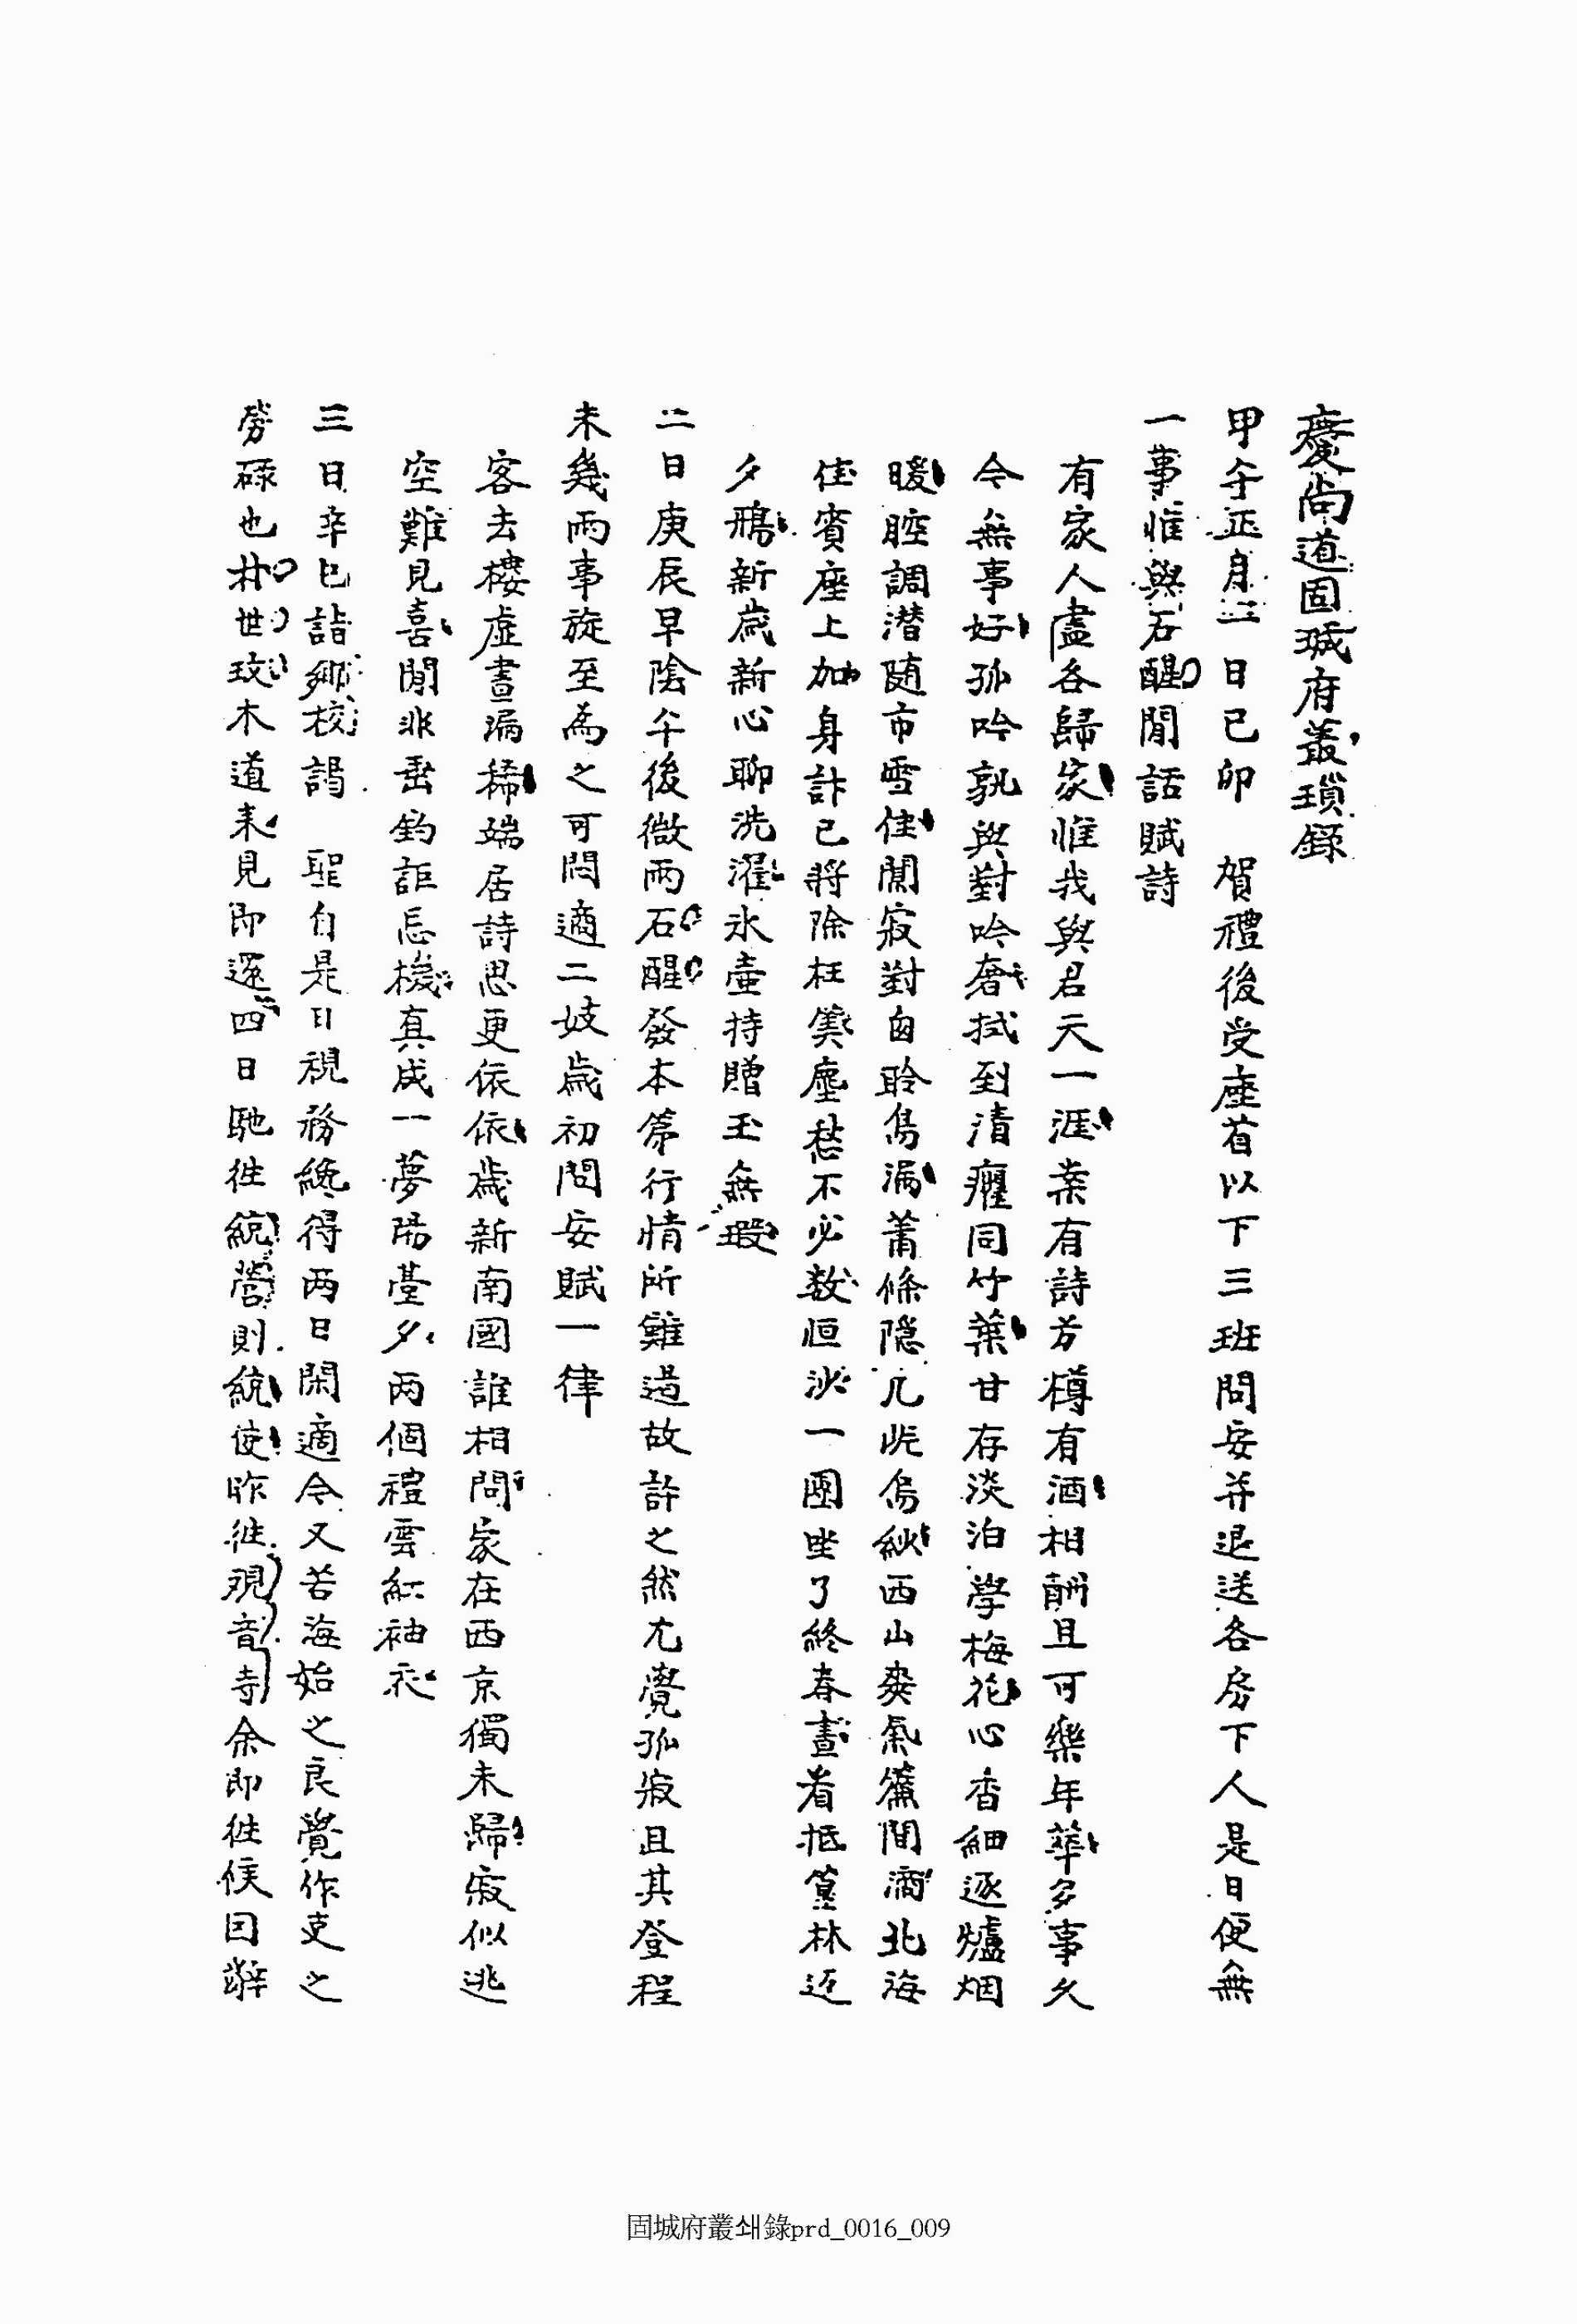 慶尙道固城府叢瑣錄
甲午正月一日己卯 賀禮後受座首以下三班問安并退送各房下人是日便無
一事惟與石醒閒話賦詩
有家人盡各歸家惟我與君天一涯案有詩芳樽有酒相酬且可樂年華多事久
今無事好孤吟孰與對吟奢拭到淸癯同竹葉甘存淡泊學梅花心香細逐爐烟
暖腔調潜随市雪佳闃寂對自聆島漏蕭條隠几岸烏紗西山爽氣簾間滴北海
佳賓座上加身計已將除枉筭塵愁不必数恒沙一團坐了終春晝看抵篁林近
夕鴉新歲新心聊洗濯氷壺持贈玉無瑕
二日庚辰早陰午後微雨石醒發本第行情所難過故許之然尤覺孤寂且其登程
未幾雨事旋至爲之可悶適二妓歲初問安賦一律
客去樓虛晝漏稀端居詩思更依依歲新南國誰相問家在西京獨未歸寂似逃
空難見喜閒非垂釣詎忘機真成一夢陽臺夕两個禮雲紅袖衣
三日辛巳詣鄕校謁 聖自是日視務纔得两日閑適今又苦海始之良覺作吏之
勞碌也井世玟木道来見即還四日馳徃統營則統使昨徃觀音寺余即徃候回辭
固城府叢쇄錄prd_0016_009